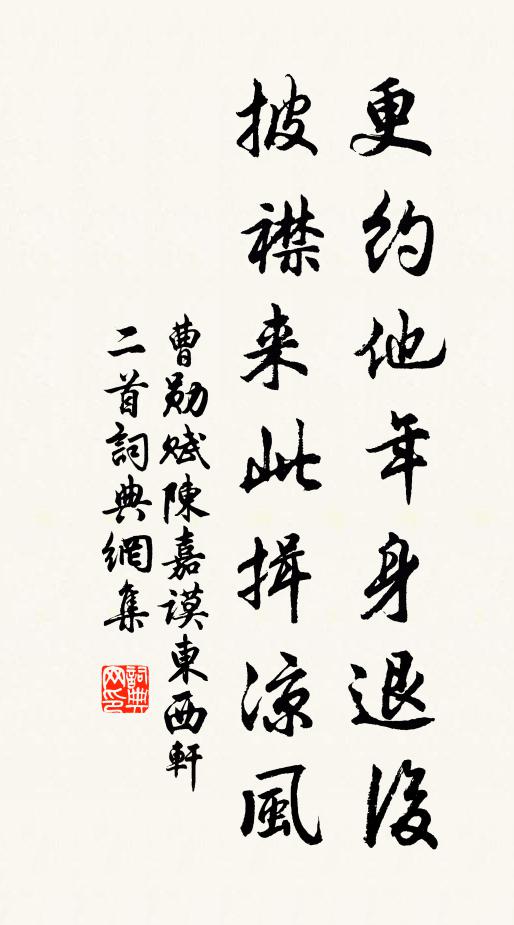 更约他年身退後
披襟来此揖凉風
曹勛賦陳嘉謨東西軒
二首詞典網集
詞典
网印